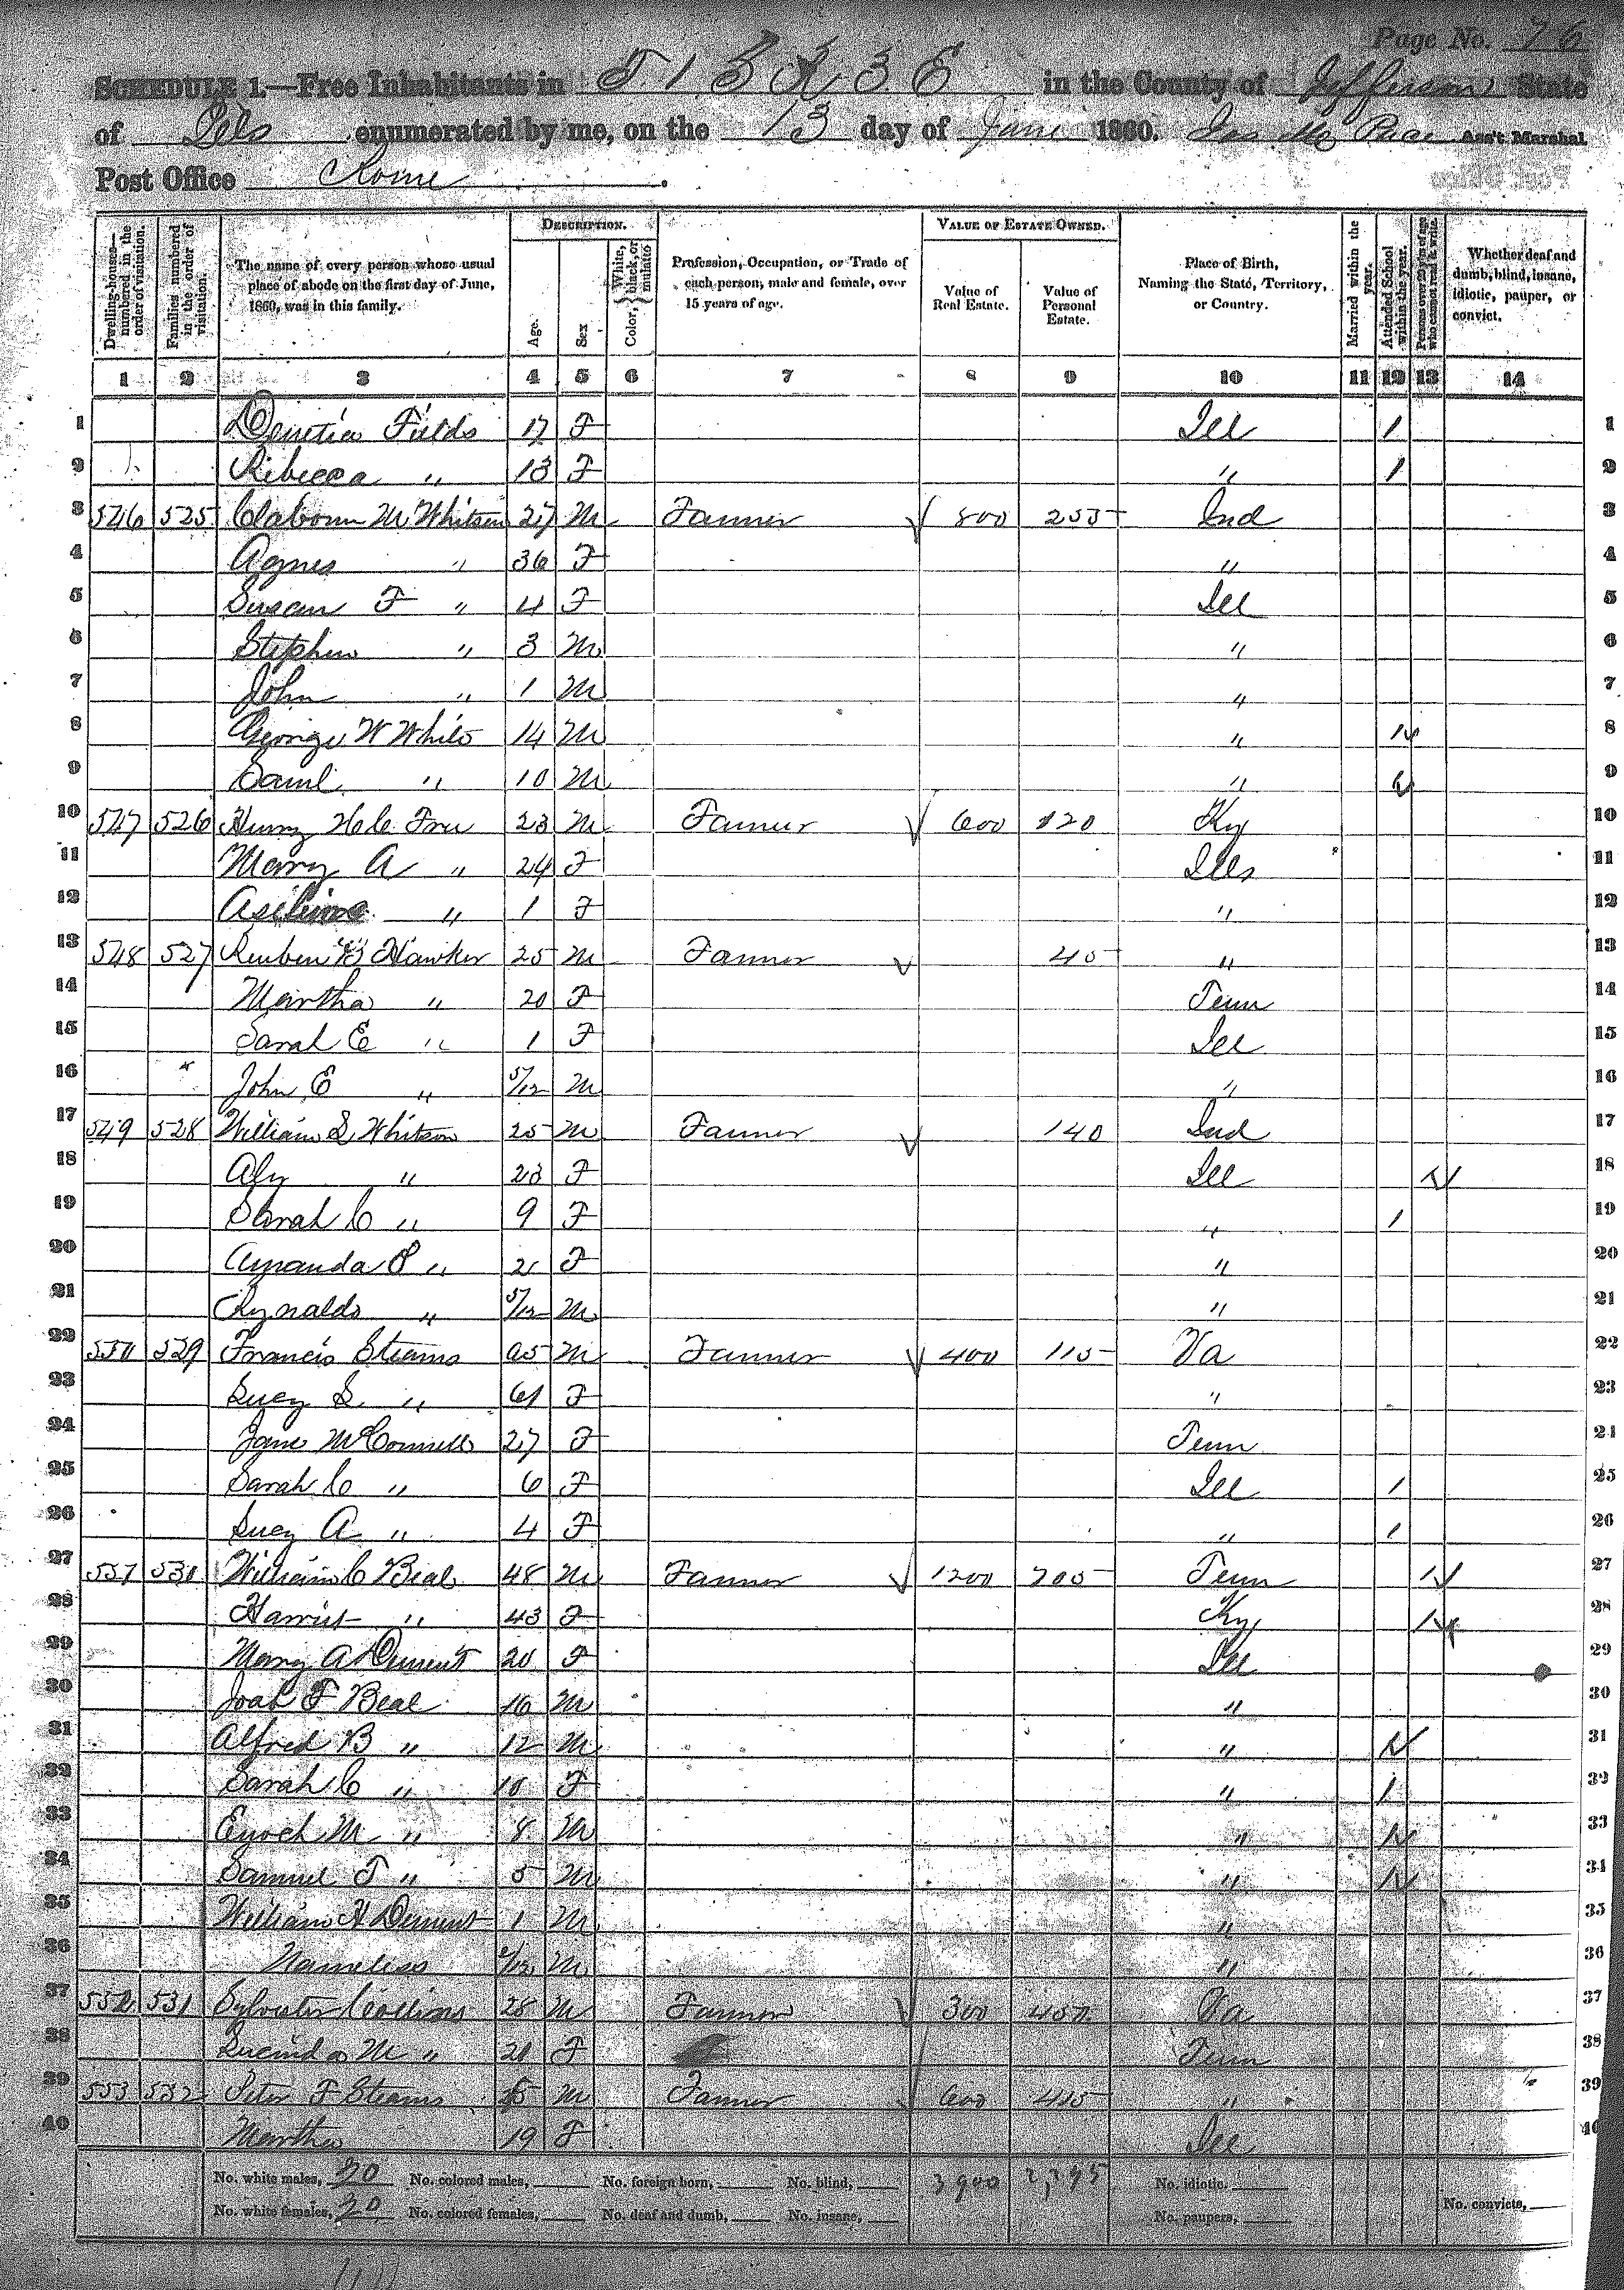 Page No. 76
SCHEDULE 1.—Free Inhabitants in T 1 S R 3 E in the County of Jefferson State
of Ills enumerated by me, on the 13 day of June 1860. Jas Mc Pace Ass't Marshal
Post Office Rome.
Dwelling-houses—numbered in the order of visitation. Families numbered in the order of visitation. The name of every person whose usual place of abode on the first day of June, 1860, was in this family. DESCRIPTION. Age. Sex Color, White, black, or mulatto Profession, Occupation, or Trade of each person, male and female, over 15 years of age. VALUE OF ESTATE OWNED. Value of Real Estate. Value of Personal Estate. Place of Birth, Naming the State, Territory, or Country. Married within the year. Attended School within the year. Persons over 20 y'rs of age who cannot read & write. Whether deaf and dumb, blind, insane, idiotic, pauper, or convict.
1 2 3 4 5 6 7 8 9 10 11 12 13 14
1 Fields 17 F Ill 1 1
2 Rebecca " 13 F " 1 2
3 546 525 Claborn M Whitson 27 M Farmer 800 255 Ind 3
4 Agnes " 36 F " 4
5 Susan F " 4 F Ill 5
6 Stephen " 3 M " 6
7 John " 1 M " 7
8 George W White 14 M " 1 8
9 Saml " 10 M " 9
10 547 526 Henry H C Free 23 M Farmer 600 120 Ky 10
11 Mary A " 24 F Ills 11
12 " 1 F " 12
13 548 527 Reuben B Hawker 25 M Farmer 45 " 13
14 Martha " 20 F Tenn 14
15 Sarah E " 1 F Ill 15
16 John E " 5/12 M " 16
17 549 528 William S Whitson 25 M Farmer 140 Ind 17
18 Aly " 23 F Ill 18
19 Sarah C " 9 F " 1 19
20 Amanda P " 2 F " 20
21 Rynaldo " 5/12 M " 21
22 550 529 Francis Stearns 65 M Farmer 400 115 Va 22
23 Lucy S. " 61 F " 23
24 Jane McConnell 27 F Tenn 24
25 Sarah C " 6 F Ill 1 25
26 Lucy A " 4 F " 1 26
27 551 530 William C Beal 48 M Farmer 1200 705 Tenn 1 27
28 Harriet " 43 F Ky 1 28
29 Mary A Dement 20 F Ill 29
30 Joab F Beal 16 M " 30
31 Alfred B " 12 M " 1 31
32 Sarah C " 10 F " 1 32
33 Enoch M " 8 M " 1 33
34 Samuel T " 5 M " 1 34
35 William H Dement 1 M " 35
36 Nameless /12 M " 36
37 552 531 Sylvester Collins 28 M Farmer 300 450 Va 37
38 Lucinda M " 21 F Tenn 38
39 553 532 Peter F Stearns 25 M Farmer 600 415 " 39
40 Martha 19 F Ill 40
No. white males, 20 No. colored males, No. foreign born, No. blind, 3900 No. idiotic,
No. white females, 20 No. colored females, No. deaf and dumb, No. insane, No. paupers, No. convicts,